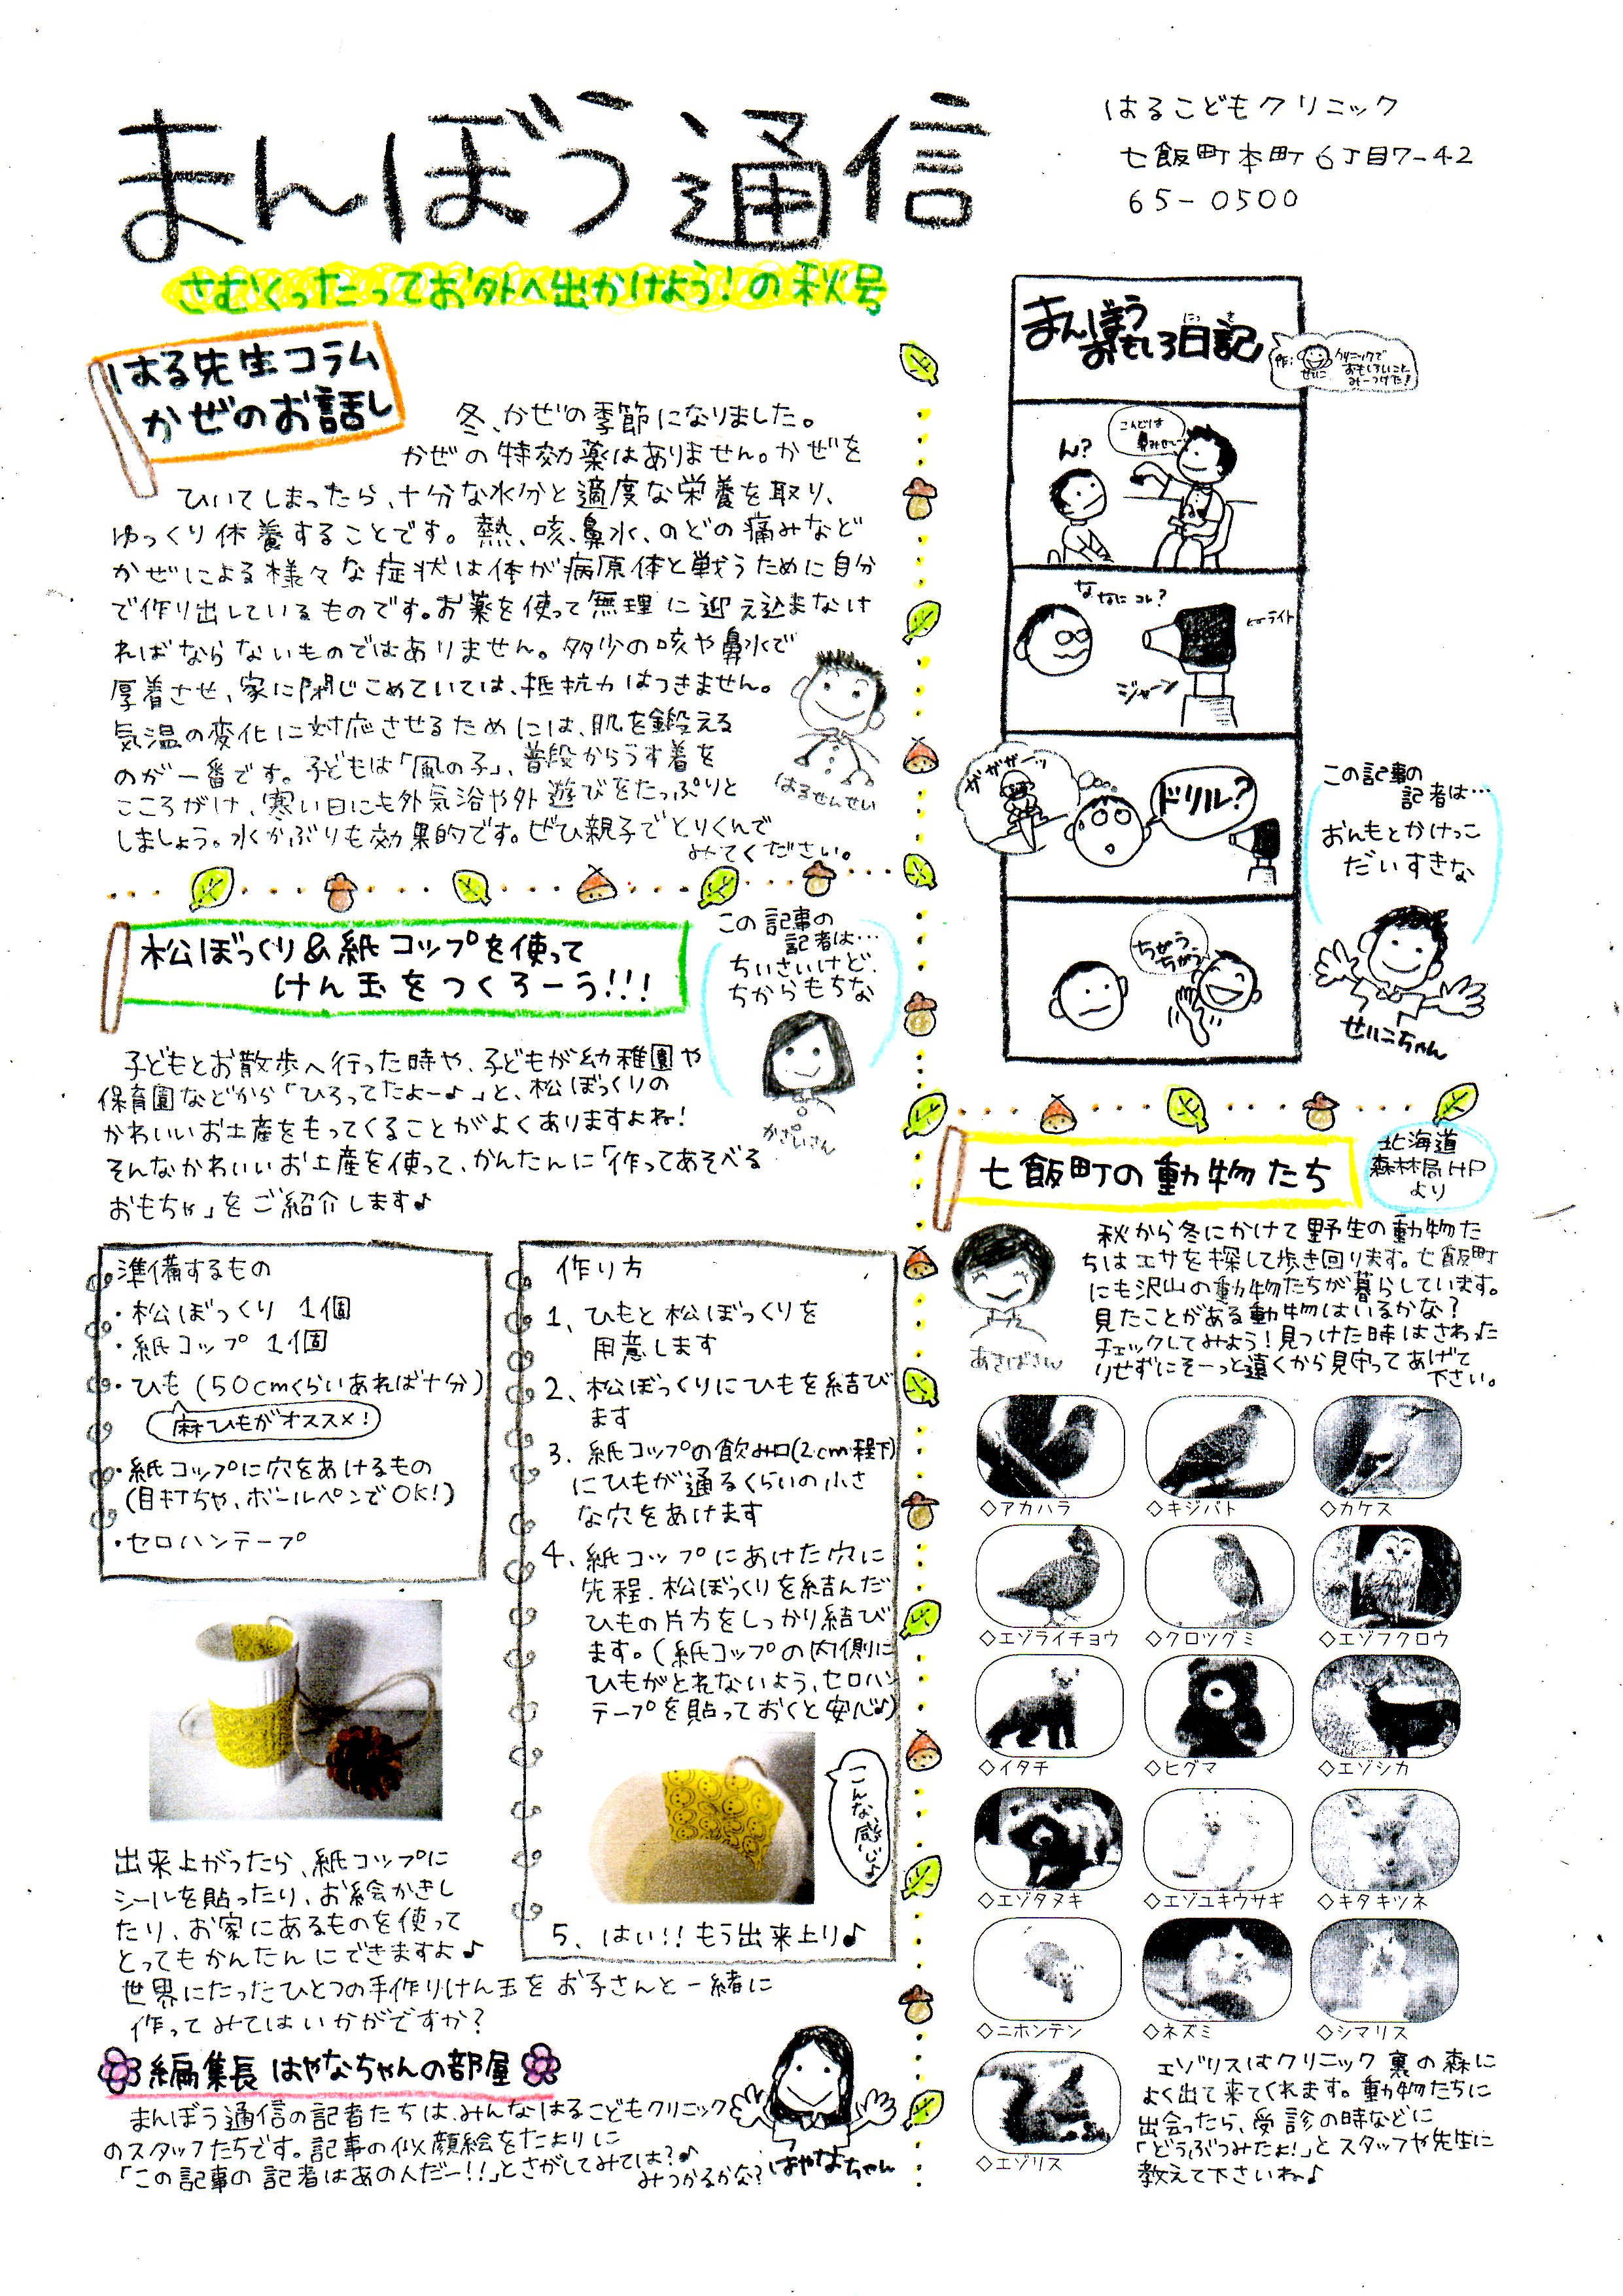 まんぼう通信
はるこどもクリニック
七飯町本町6丁目7-42
65-0500
さむくったってお外へ出かけよう!の秋号
はる先生コラム
かぜのお話し
冬、かぜの季節になりました。
かぜの特効薬はありません。かぜを
ひいてしまったら、十分な水分と適度な栄養を取り、
ゆっくり休養することです。熱、咳、鼻水、のどの痛みなど
かぜによる様々な症状は体が病原体と戦うために自分
で作り出しているものです。お薬を使って無理に迎え込まなけ
ればならないものではありません。多少の咳や鼻水で
厚着させ、家に閉じこめていては、抵抗力はつきません。
気温の変化に対応させるためには、肌を鍛える
のが一番です。子どもは「風の子」、普段からうす着を
こころがけ、寒い日にも外気浴や外遊びをたっぷりと
しましょう。水かぶりも効果的です。ぜひ親子でとりくんで
みてください。
はるせんせい
松ぼっくり&紙コップを使って
けん玉をつくろーう!!!
この記事の
記者は…
ちいさいけど、
ちからもちな
かさいさん
子どもとお散歩へ行った時や、子どもが幼稚園や
保育園などから「ひろってたよー♪」と、松ぼっくりの
かわいいお土産をもってくることがよくありますよね!
そんなかわいいお土産を使って、かんたんに「作ってあそべる
おもちゃ」をご紹介します♪
準備するもの
・松ぼっくり 1個
・紙コップ 1個
・ひも(50cmくらいあれば十分)
麻ひもがオススメ!
・紙コップに穴をあけるもの
(目打ちや、ボールペンでOK!)
・セロハンテープ
作り方
1、ひもと松ぼっくりを
用意します
2、松ぼっくりにひもを結び
ます
3、紙コップの飲み口(2cm程下)
にひもが通るくらいの小さ
な穴をあけます
4、紙コップにあけた穴に
先程、松ぼっくりを結んだ
ひもの片方をしっかり結び
ます。(紙コップの内側に
ひもがとれないよう、セロハン
テープを貼っておくと安心♪)
こんな感じ♪
5、はい!!もう出来上り♪
出来上がったら、紙コップに
シールを貼ったり、お絵かきし
たり、お家にあるものを使って
とってもかんたんにできますよ♪
世界にたったひとつの手作りけん玉をお子さんと一緒に
作ってみてはいかがですか?
編集長 はやなちゃんの部屋
まんぼう通信の記者たちは、みんなはるこどもクリニック
のスタッフたちです。記事の似顔絵をたよりに
「この記事の記者はあの人だー!!」とさがしてみては?♪
みつかるかな?
はやなちゃん
まんぼう
おもしろ日記
にっき
作:
せいこ
クリニックで
おもしろいこと
みーつけた!
こんどは
鼻みせてー
ん?
ななにコレ?
←ライト
ジャーン
ガガガーッ
ドリル?
ちがう
ちがう
この記事の
記者は…
おんもとかけっこ
だいすきな
せいこちゃん
七飯町の動物たち
北海道
森林局HP
より
あさばさん
秋から冬にかけて野生の動物た
ちはエサを探して歩き回ります。七飯町
にも沢山の動物たちが暮らしています。
見たことがある動物はいるかな?
チェックしてみよう!見つけた時はさわった
りせずにそーっと遠くから見守ってあげて
下さい。
◇アカハラ ◇キジバト ◇カケス
◇エゾライチョウ ◇クロツグミ ◇エゾフクロウ
◇イタチ ◇ヒグマ ◇エゾシカ
◇エゾタヌキ ◇エゾユキウサギ ◇キタキツネ
◇ニホンテン ◇ネズミ ◇シマリス
◇エゾリス
エゾリスはクリニック裏の森に
よく出て来てくれます。動物たちに
出会ったら、受診の時などに
「どうぶつみたよ!」とスタッフや先生に
教えて下さいね♪